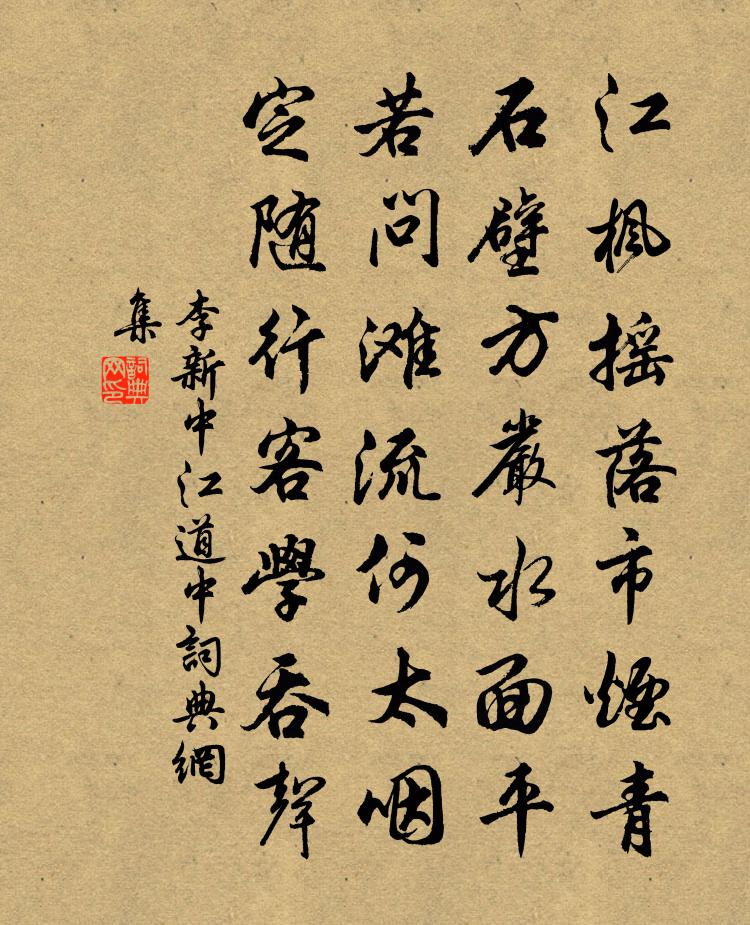 江楓摇落市煙青
石壁方嚴水面平
若問滩流何太咽
定随行客學吞聲
李新中江道中詞典網
集
詞典
网印